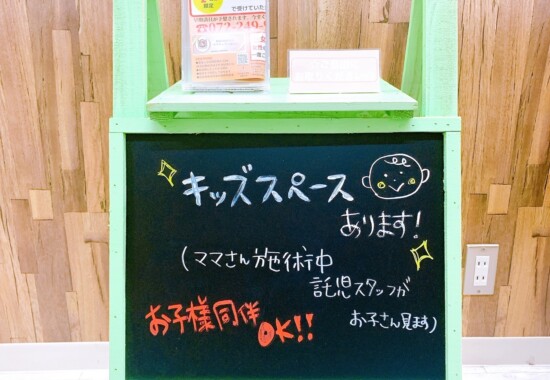 で受けていた
072-249-
キッズスペース
あります!
(ママさん施術中
託児スタッフが
お子さん見ます)
お子様同伴
OK!!